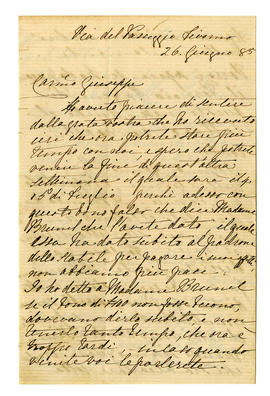 Via del Passeggio Livorno
26. Giugno 85
Carmo Giuseppe
Ho avuto piacere di sentire
dalla grata vostra che ho ricevuto
ieri che ora potrete stare piu
tempo con noi e spero che potrete
venire la fine di quest'altra
settimana il quale sara il
5 di Luglio perchè adesso con
questo bono falso che dice Madame
Brunel che l'avete dato, il quale
essa ha dato subito al padrone
dello stabile per pagare i suoi
non abbiamo piu pace.
Io ho detto a Madame Brunel
se il bono di non fosse buono,
dovevano dirlo subito e non
tenerlo tanto tempo, che ora è
troppo tardi, in caso quando
venite voi le parlerete.